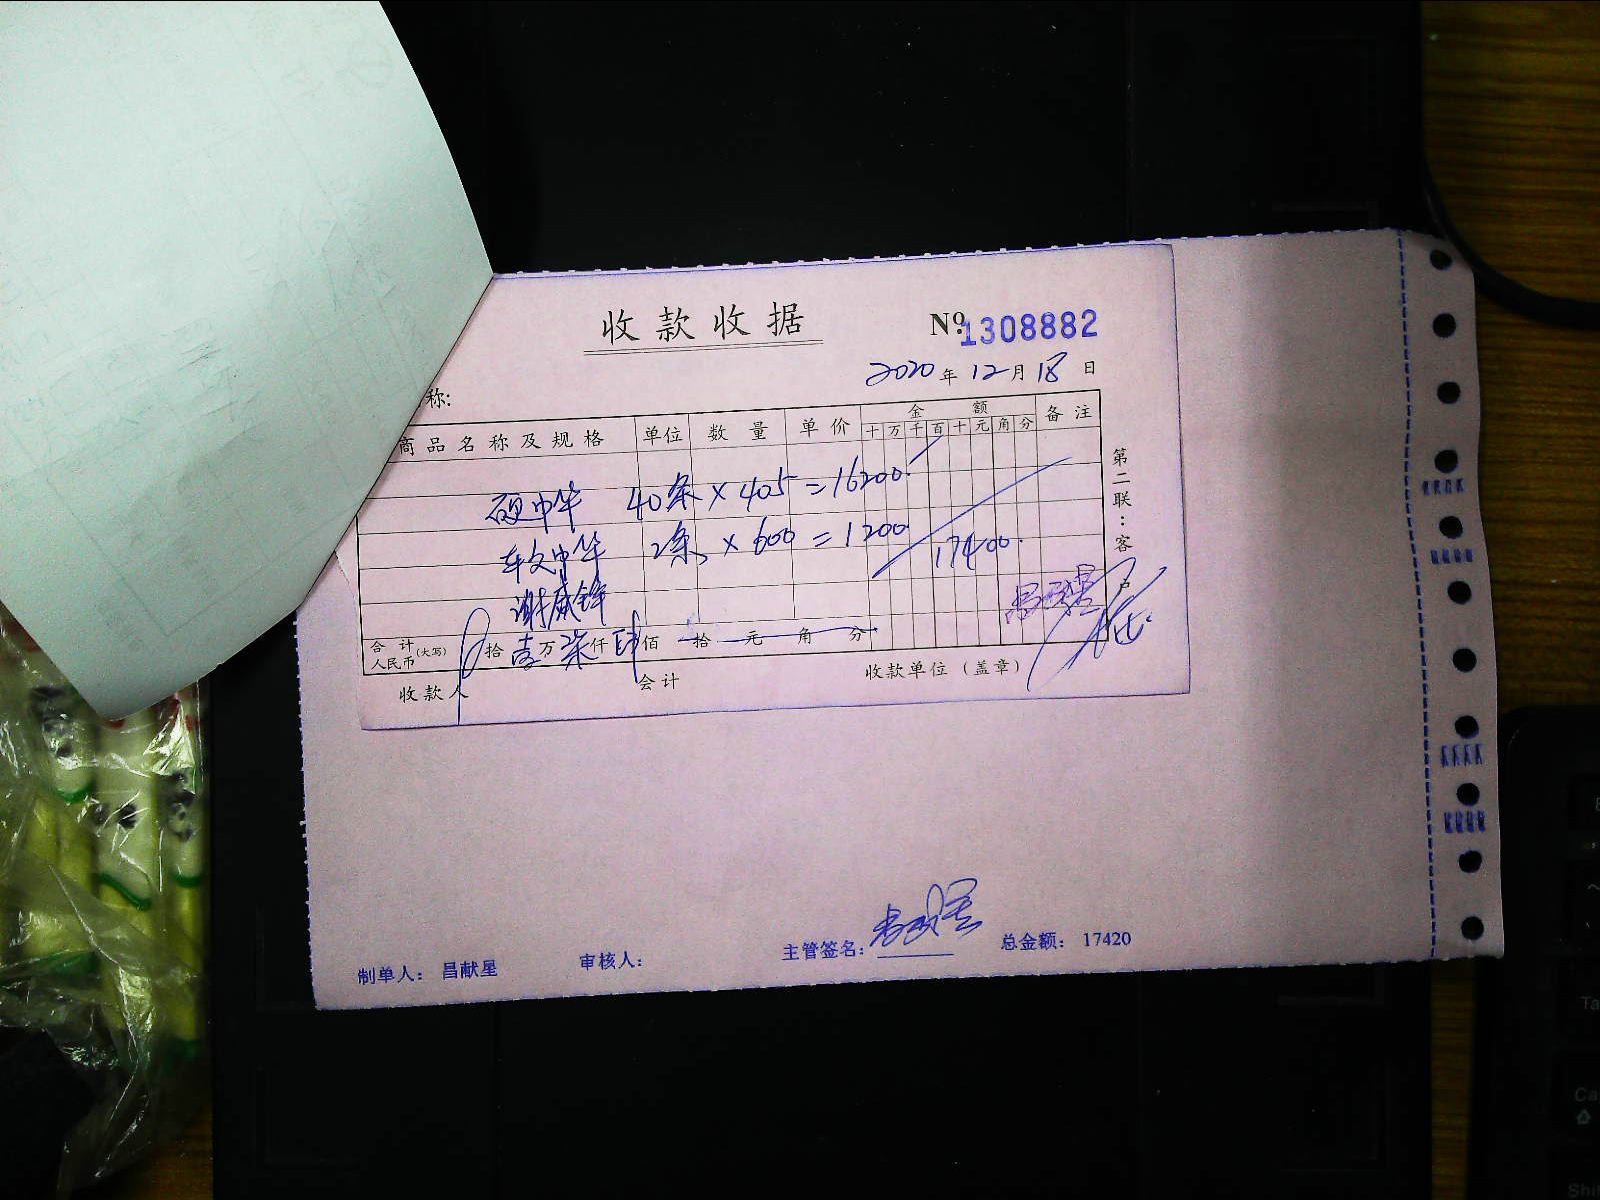 收款收据
№ 1308882
2020年12月18日
称:
商品名称及规格 单位 数量 单价 金额 备注
十 万 千 百 十 元 角 分
硬中华 40条×405=16200.
软中华 2条×600=1200.
17400.
谢威锋
合计人民币(大写) 拾壹万柒仟肆佰拾元角分
收款人 会计 收款单位(盖章)
第二联:客户
制单人: 昌献星 审核人: 主管签名: 昌献星 总金额: 17420